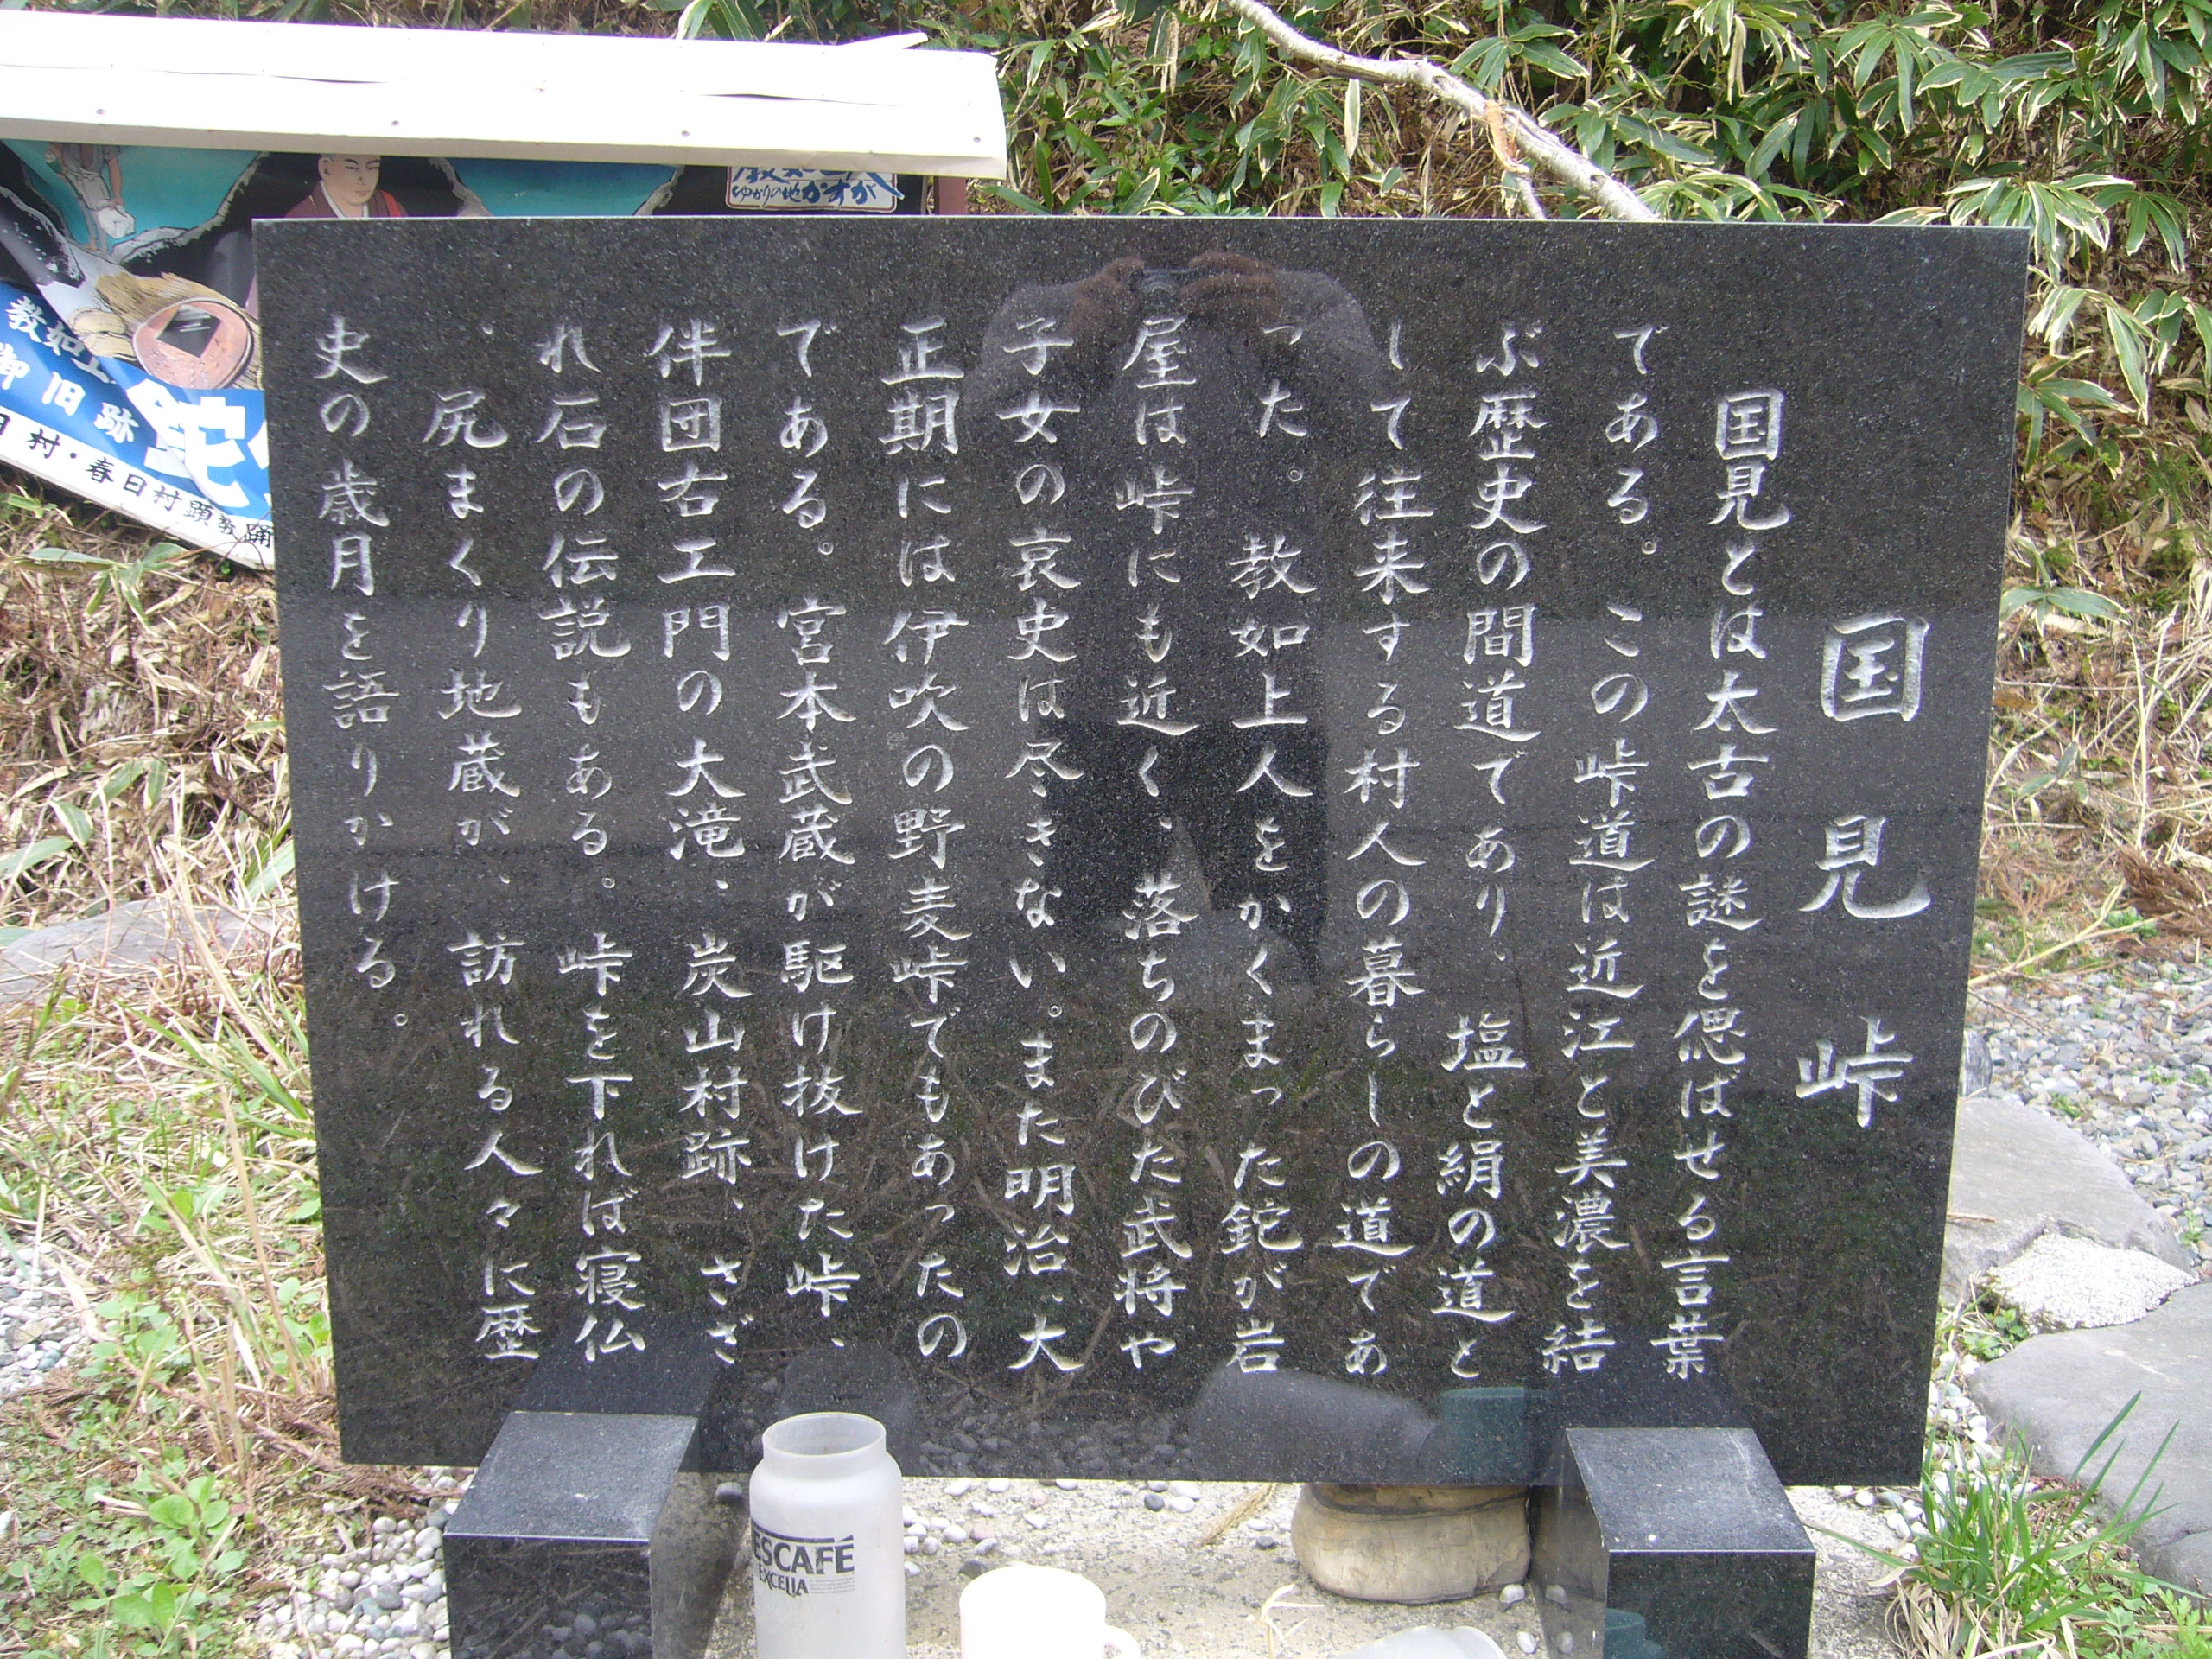 国見峠
国見とは太古の謎を偲ばせる言葉
である。この峠道は近江と美濃を結
ぶ歴史の間道であり、塩と絹の道と
して往来する村人の暮らしの道であ
った。教如上人をかくまった鉈が岩
屋は峠にも近く、落ちのびた武将や
子女の哀史は尽きない。また明治、大
正期には伊吹の野麦峠でもあったの
である。宮本武蔵が駆け抜けた峠、
伴団右エ門の大滝、炭山村跡、さざ
れ石の伝説もある。峠を下れば寝仏
、尻まくり地蔵が、訪れる人々に歴
史の歳月を語りかける。
ゆかりの地かすが
教如上
御旧跡
鉈
日村・春日村顕教踊
ESCAFÉ
EXCELLA